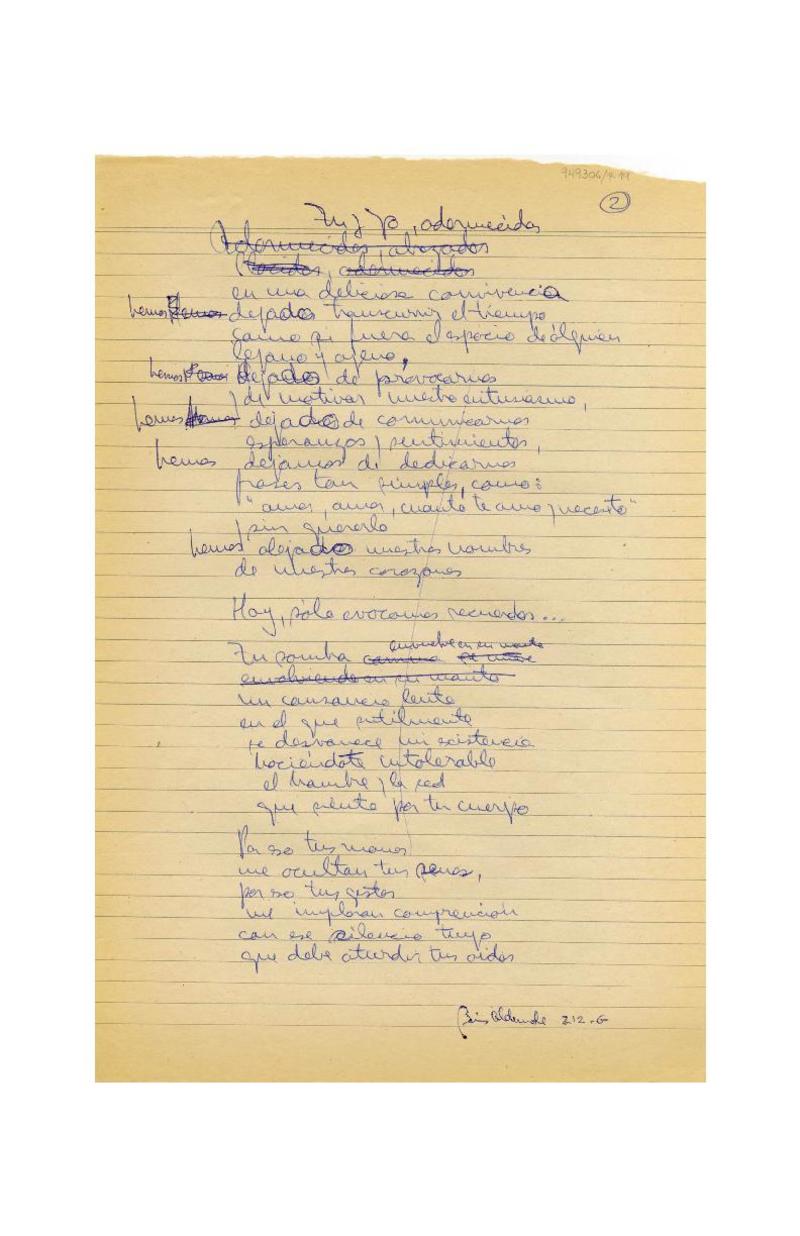 2
Tu y yo, adormecidos
Adormecidos, abrazados
adormecidos
en una deliciosa convivencia
hemos hemos dejado transcurrir el tiempo
como si fuera el espacio de álguien
lejano y ajeno,
hemos hemos dejado de provocarnos
de motivar nuestro entusiasmo,
hemos hemos dejado de comunicarnos
esperanzas y sentimientos,
hemos dejamos de dedicarnos
frases tan simples, como:
"amor, amor, cuanto te amo y necesito"
sin quererlo
hemos alejado nuestros nombres
de nuestros corazones
Hoy, sólo evocamos recuerdos...
envuelve en su manto
Tu sombra camina se
envolviendo en su manto
un cansancio lento
en el que sutilmente
se desvanece mi existencia
haciéndote intolerable
el hambre y la sed
que siento por tu cuerpo
Por eso tus manos
me ocultan tus senos,
por eso tus gestos
me imploran comprención
con ese silencio tuyo
que debe aturdir tus oidos
212-G